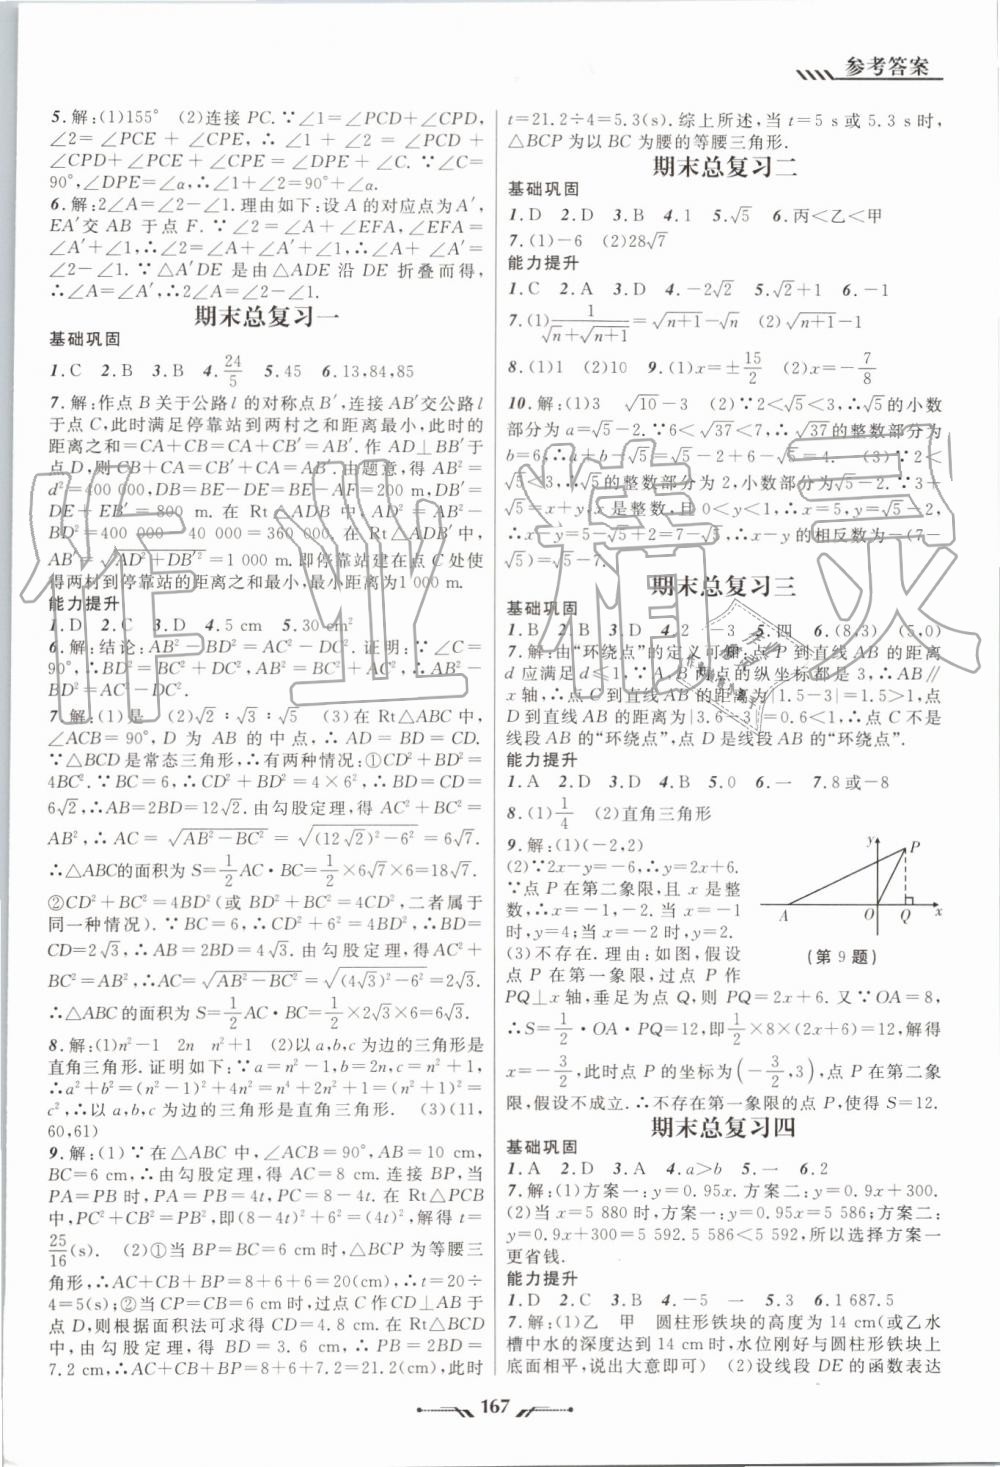 参考答案
5.解:(1)155° (2)连接 PC.∵∠1=∠PCD+∠CPD,
∠2=∠PCE+∠CPE,∴∠1+∠2=∠PCD+
∠CPD+∠PCE+∠CPE=∠DPE+∠C.∵∠C=
90°,∠DPE=∠α,∴∠1+∠2=90°+∠α.
6.解:2∠A=∠2-∠1.理由如下:设 A 的对应点为A′,
EA′交 AB 于点 F.∵∠2=∠A+∠EFA,∠EFA=
∠A′+∠1,∴∠2=∠A+∠A′+∠1,∴∠A+∠A′=
∠2-∠1.∵△A′DE 是由△ADE 沿 DE 折叠而得,
∴∠A=∠A′,∴2∠A=∠2-∠1.
期末总复习一
基础巩固
1.C 2.B 3.B 4.24/5 5.45 6.13,84,85
7.解:作点 B 关于公路 l 的对称点 B′,连接 AB′交公路 l
于点 C,此时满足停靠站到两村之和最小,此时的
距离之和=CA+CB=CA+CB′=AB′.作 AD⊥BB′于
点 D,则 CB+CA=CB′+CA=AB′.由题意,得 AB²=
d²=400 000,DB=BE-DE=BE-AF=200 m,DB′=
DE+EB′=800 m.在 Rt△ADB 中,AD²=AB²-
BD²=400 000-40 000=360 000.在 Rt△ADB′中,
AB′=√(AD²+DB′²)=1 000 m.即停靠站建在点 C 处使
得两村到停靠站的距离之和最小,最小距离为1 000 m.
能力提升
1.D 2.C 3.D 4.5 cm 5.30 cm²
6.解:结论:AB²-BD²=AC²-DC².证明:∵∠C=
90°,∴BD²=BC²+DC²,AB²=BC²+AC²,∴AB²-
BD²=AC²-DC².
7.解:(1)是 (2)√2∶√3∶√5 (3)在 Rt△ABC 中,
∠ACB=90°,D 为 AB 的中点,∴AD=BD=CD.
∵△BCD 是常态三角形,∴有两种情况:①CD²+BD²=
4BC².∵BC=6,∴CD²+BD²=4×6²,∴BD=CD=
6√2,∴AB=2BD=12√2.由勾股定理,得 AC²+BC²=
AB²,∴AC=√(AB²-BC²)=√((12√2)²-6²)=6√7.
∴△ABC的面积为 S=1/2AC·BC=1/2×6√7×6=18√7.
②CD²+BC²=4BD²(或 BD²+BC²=4CD²,二者属于
同一种情况).∵BC=6,∴CD²+6²=4BD²,∴BD=
CD=2√3,∴AB=2BD=4√3.由勾股定理,得AC²+
BC²=AB²,∴AC=√(AB²-BC²)=√((4√3)²-6²)=2√3.
∴△ABC的面积为 S=1/2AC·BC=1/2×2√3×6=6√3.
8.解:(1)n²-1 2n n²+1 (2)以 a,b,c 为边的三角形是
直角三角形.证明如下:∵a=n²-1,b=2n,c=n²+1,
∴a²+b²=(n²-1)²+4n²=n⁴+2n²+1=(n²+1)²=
c²,∴以 a,b,c 为边的三角形是直角三角形. (3)(11,
60,61)
9.解:(1)∵在△ABC 中,∠ACB=90°,AB=10 cm,
BC=6 cm,∴由勾股定理,得 AC=8 cm.连接 BP,当
PA=PB 时,PA=PB=4t,PC=8-4t,在 Rt△PCB
中,PC²+CB²=PB²,即(8-4t)²+6²=(4t)²,解得 t=
25/16(s). (2)①当 BP=BC=6 cm时,△BCP 为等腰三
角形,∴AC+CB+BP=8+6+6=20(cm),∴t=20÷
4=5(s);②当 CP=CB=6 cm时,过点 C 作 CD⊥AB 于
点 D,则根据面积法可求得 CD=4.8 cm.在 Rt△BCD
中,由勾股定理,得 BD=3.6 cm,∴PB=2BD=
7.2 cm,∴AC+CB+BP=8+6+7.2=21.2(cm),此时
t=21.2÷4=5.3(s).综上所述,当 t=5 s 或 5.3 s 时,
△BCP 为以 BC 为腰的等腰三角形.
期末总复习二
基础巩固
1.D 2.D 3.B 4.1 5.√5 6.丙<乙<甲
7.(1)-6 (2)28√7
能力提升
1.C 2.A 3.D 4.-2√2 5.√2+1 6.-1
7.(1)1/(√n+√(n+1))=√(n+1)-√n (2)√(n+1)-1
8.(1)1 (2)10 9.(1)x=±15/2 (2)x=-7/8
10.解:(1)3 √10-3 (2)∵2<√5<3,∴√5的小数
部分为 a=√5-2.∵6<√37<7,∴√37的整数部分为
b=6,∴a+b-√5=√5-2+6-√5=4. (3)∵2<
√5<3,∴√5的整数部分为 2,小数部分为√5-2.∵7-
√5=x+y,x 是整数,且 0<y<1,
∴x-y=5-√5+2=7-√5,∴x-y的相反数为-(7-
√5)=√5-7.
期末总复习三
基础巩固
1.B 2.B 3.D 4.2 -3 5.四 6.(8,3) (5,0)
7.解:由“环绕点”的定义可知:点 P 到直线 AB 的距离
d 应满足 d≤1,∵A,B 两点的纵坐标都是 3,∴AB∥
x 轴,∴点 C 到直线 AB 的距离为|1.5-3|=1.5>1,点
D 到直线 AB 的距离为|3.6-3|=0.6<1,∴点 C 不是
线段 AB 的“环绕点”,点 D 是线段 AB 的“环绕点”.
能力提升
1.A 2.D 3.D 4.B 5.0 6.一 7.8或-8
8.(1)1/4 (2)直角三角形
9.解:(1)(-2,2)
(2)∵2x-y=-6,∴y=2x+6.
∵点 P 在第二象限,且 x 是整
数,∴x=-1,-2.当 x=-1
时,y=4;当 x=-2 时,y=2.
(3)不存在.理由:如图,假设
点 P 在第一象限,过点 P 作
y
P
A
O
Q
x
(第 9 题)
PQ⊥x 轴,垂足为点 Q,则 PQ=2x+6.又∵OA=8,
∴S=1/2·OA·PQ=12,即1/2×8×(2x+6)=12,解得
x=-3/2,此时点 P 的坐标为(-3/2,3),点 P 在第二象
限,假设不成立.∴不存在第一象限的点 P,使得 S=12.
期末总复习四
基础巩固
1.A 2.D 3.D 4.a>b 5.一 6.2
7.解:(1)方案一:y=0.95x.方案二:y=0.9x+300.
(2)当 x=5 880 时,方案一:y=0.95x=5 586;方案二:
y=0.9x+300=5 592.5 586<5 592,所以选择方案一
更省钱.
能力提升
1.D 2.C 3.B 4.-5 一 5.3 6.1 687.5
7.解:(1)乙 甲 圆柱形铁块的高度为 14 cm(或乙水
槽中水的深度达到 14 cm时,水位刚好与圆柱形铁块上
底面相平,说出大意即可) (2)设线段 DE 的函数表达
167
作业精灵